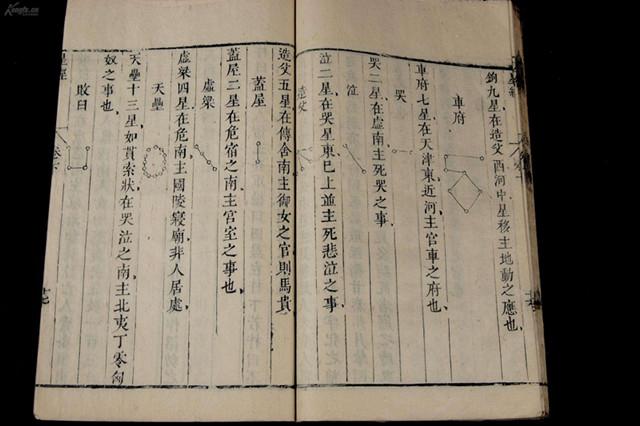 鉤九星在造父西河中星移主地動之應也
車府
車府七星在天津東近河主官車之府也
哭
哭二星在虛南主死哭之事
泣
泣二星在哭星東已上並主死悲泣之事
造父
造父五星在傳舍南主御女之官則馬貴
蓋屋
蓋屋二星在危宿之南主宮室之事也
虛梁
虛梁四星在危南主園陵寢廟非人居處
天壘
天壘十三星如貫索狀在哭泣之南主北夷丁零匈
奴之事也
敗臼
星經
卷下